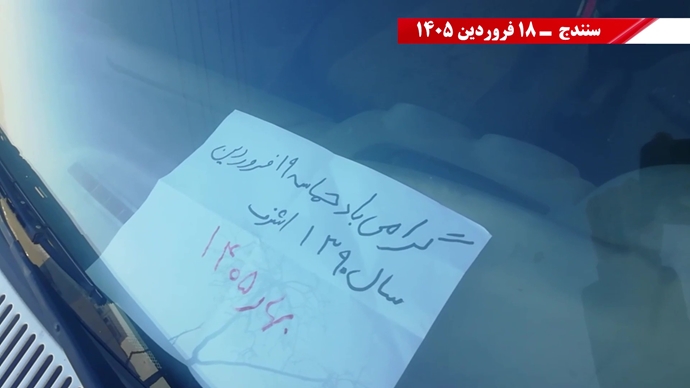 سنندج ــ ۱۸ فروردین ۱۴۰۵
گرامی باد حماسه ۱۹ فروردین
سال ۱۳۹۰ اشرف
بهار ۱۴۰۵